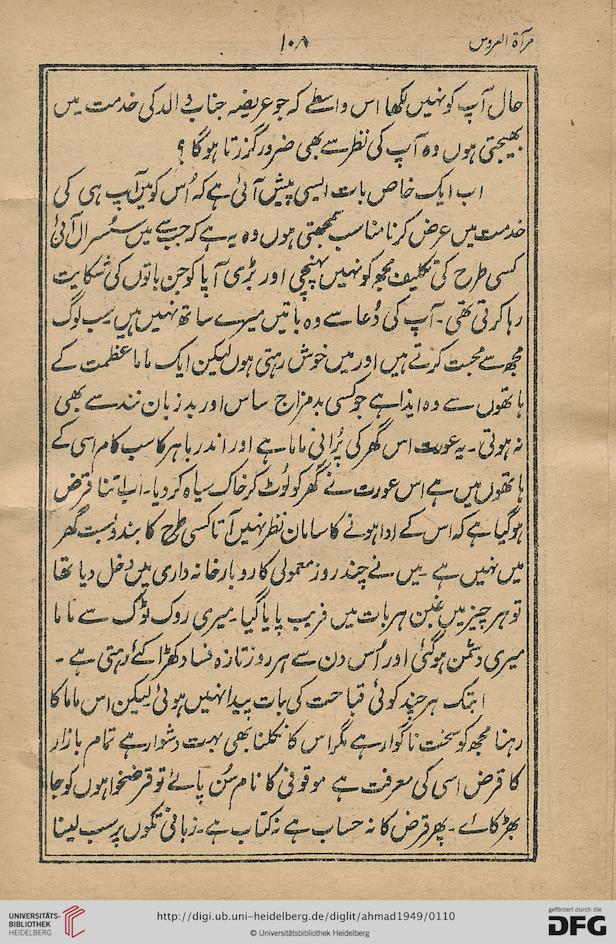 مرآۃ العروس
۱۰۸
حال آپ کو نہیں لکھا اس واسطے کہ جو عریضہ جناب والد کی خدمت میں
بھیجتی ہوں وہ آپ کی نظر سے بھی ضرور گزرتا ہوگا ؟
اب ایک خاص بات ایسی پیش آئی ہے کہ اُس کو میں آپ ہی کی
خدمت میں عرض کرنا مناسب سمجھتی ہوں وہ یہ ہے کہ جب سے میں سسرال آئی
کسی طرح کی تکلیف مجھ کو نہیں پہنچی اور بڑی آپا کو جن باتوں کی شکایت
رہا کرتی تھی ۔ آپ کی دُعا سے وہ باتیں میرے ساتھ نہیں ہیں سب لوگ
مجھ سے محبت کرتے ہیں اور میں خوش رہتی ہوں لیکن ایک ماما عظمت کے
ہاتھوں سے وہ ایذا ہے جو کسی بدمزاج ساس اور بدزبان نند سے بھی
نہ ہوتی ۔ یہ عورت اس گھر کی پُرانی ماما ہے اور اندر باہر کا سب کام اسی کے
ہاتھوں میں ہے اس عورت نے گھر کو لُوٹ کر خاک سیاہ کر دیا ۔ اب اتنا قرض
ہوگیا ہے کہ اس کے ادا ہونے کا سامان نظر نہیں آتا کسی طرح کا بندوبست گھر
میں نہیں ہے ۔ میں نے چند روز معمولی کاروبار خانہ داری میں دخل دیا تھا
تو ہر چیز میں غبن ہر بات میں فریب پایا گیا ۔ میری روک ٹوک سے ماما
میری دشمن ہوگئی اور اُس دن سے ہر روز تازہ فساد کھڑا کئے رہتی ہے ۔
ابتک ہر چند کوئی قباحت کی بات پیدا نہیں ہوئی لیکن اس ماما کا
رہنا مجھ کو سخت ناگوار ہے مگر اس کا نکلنا بھی بہت دشوار ہے تمام بازار
کا قرض اسی کی معرفت ہے موقوفی کا نام سُن پائے تو قرضخواہوں کو جا
بھڑکائے ۔ پھر قرض کا نہ حساب ہے نہ کتاب ہے ۔ زبانی تکوں پر سب لینا
UNIVERSITÄTS-
BIBLIOTHEK
HEIDELBERG
http://digi.ub.uni-heidelberg.de/diglit/ahmad1949/0110
© Universitätsbibliothek Heidelberg
gefördert durch die
DFG